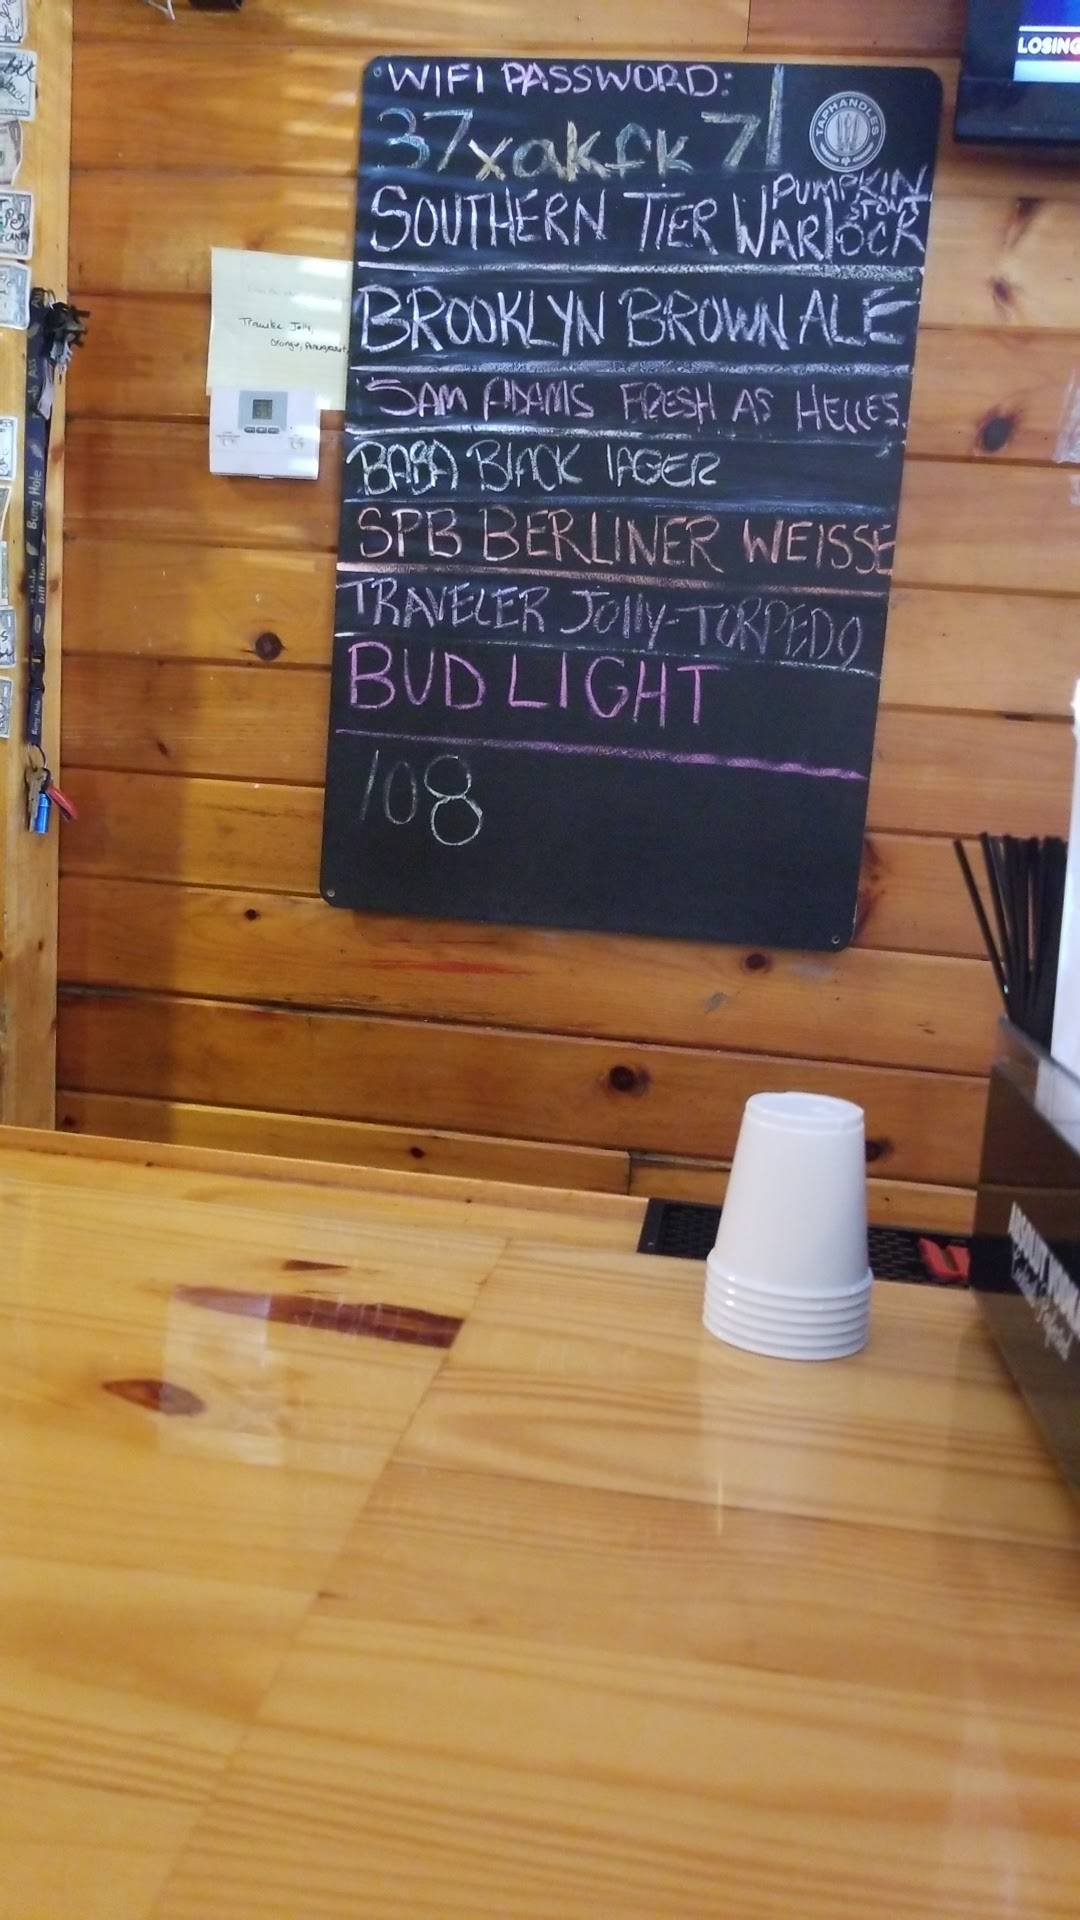 LOSING
WIFI PASSWORD:
37xakfk7
TAPHANDLES
SOUTHERN TIER WARLOCK
PUMPKIN
STOUT
BROOKLYN BROWN ALE
Orange,
SAM ADAMS FRESH AS HELLES
BABA BLACK LAGER
SPB BERLINER WEISSE
TRAVELER JOlly-TORPEDO
BUD LIGHT
108
Bung Hole